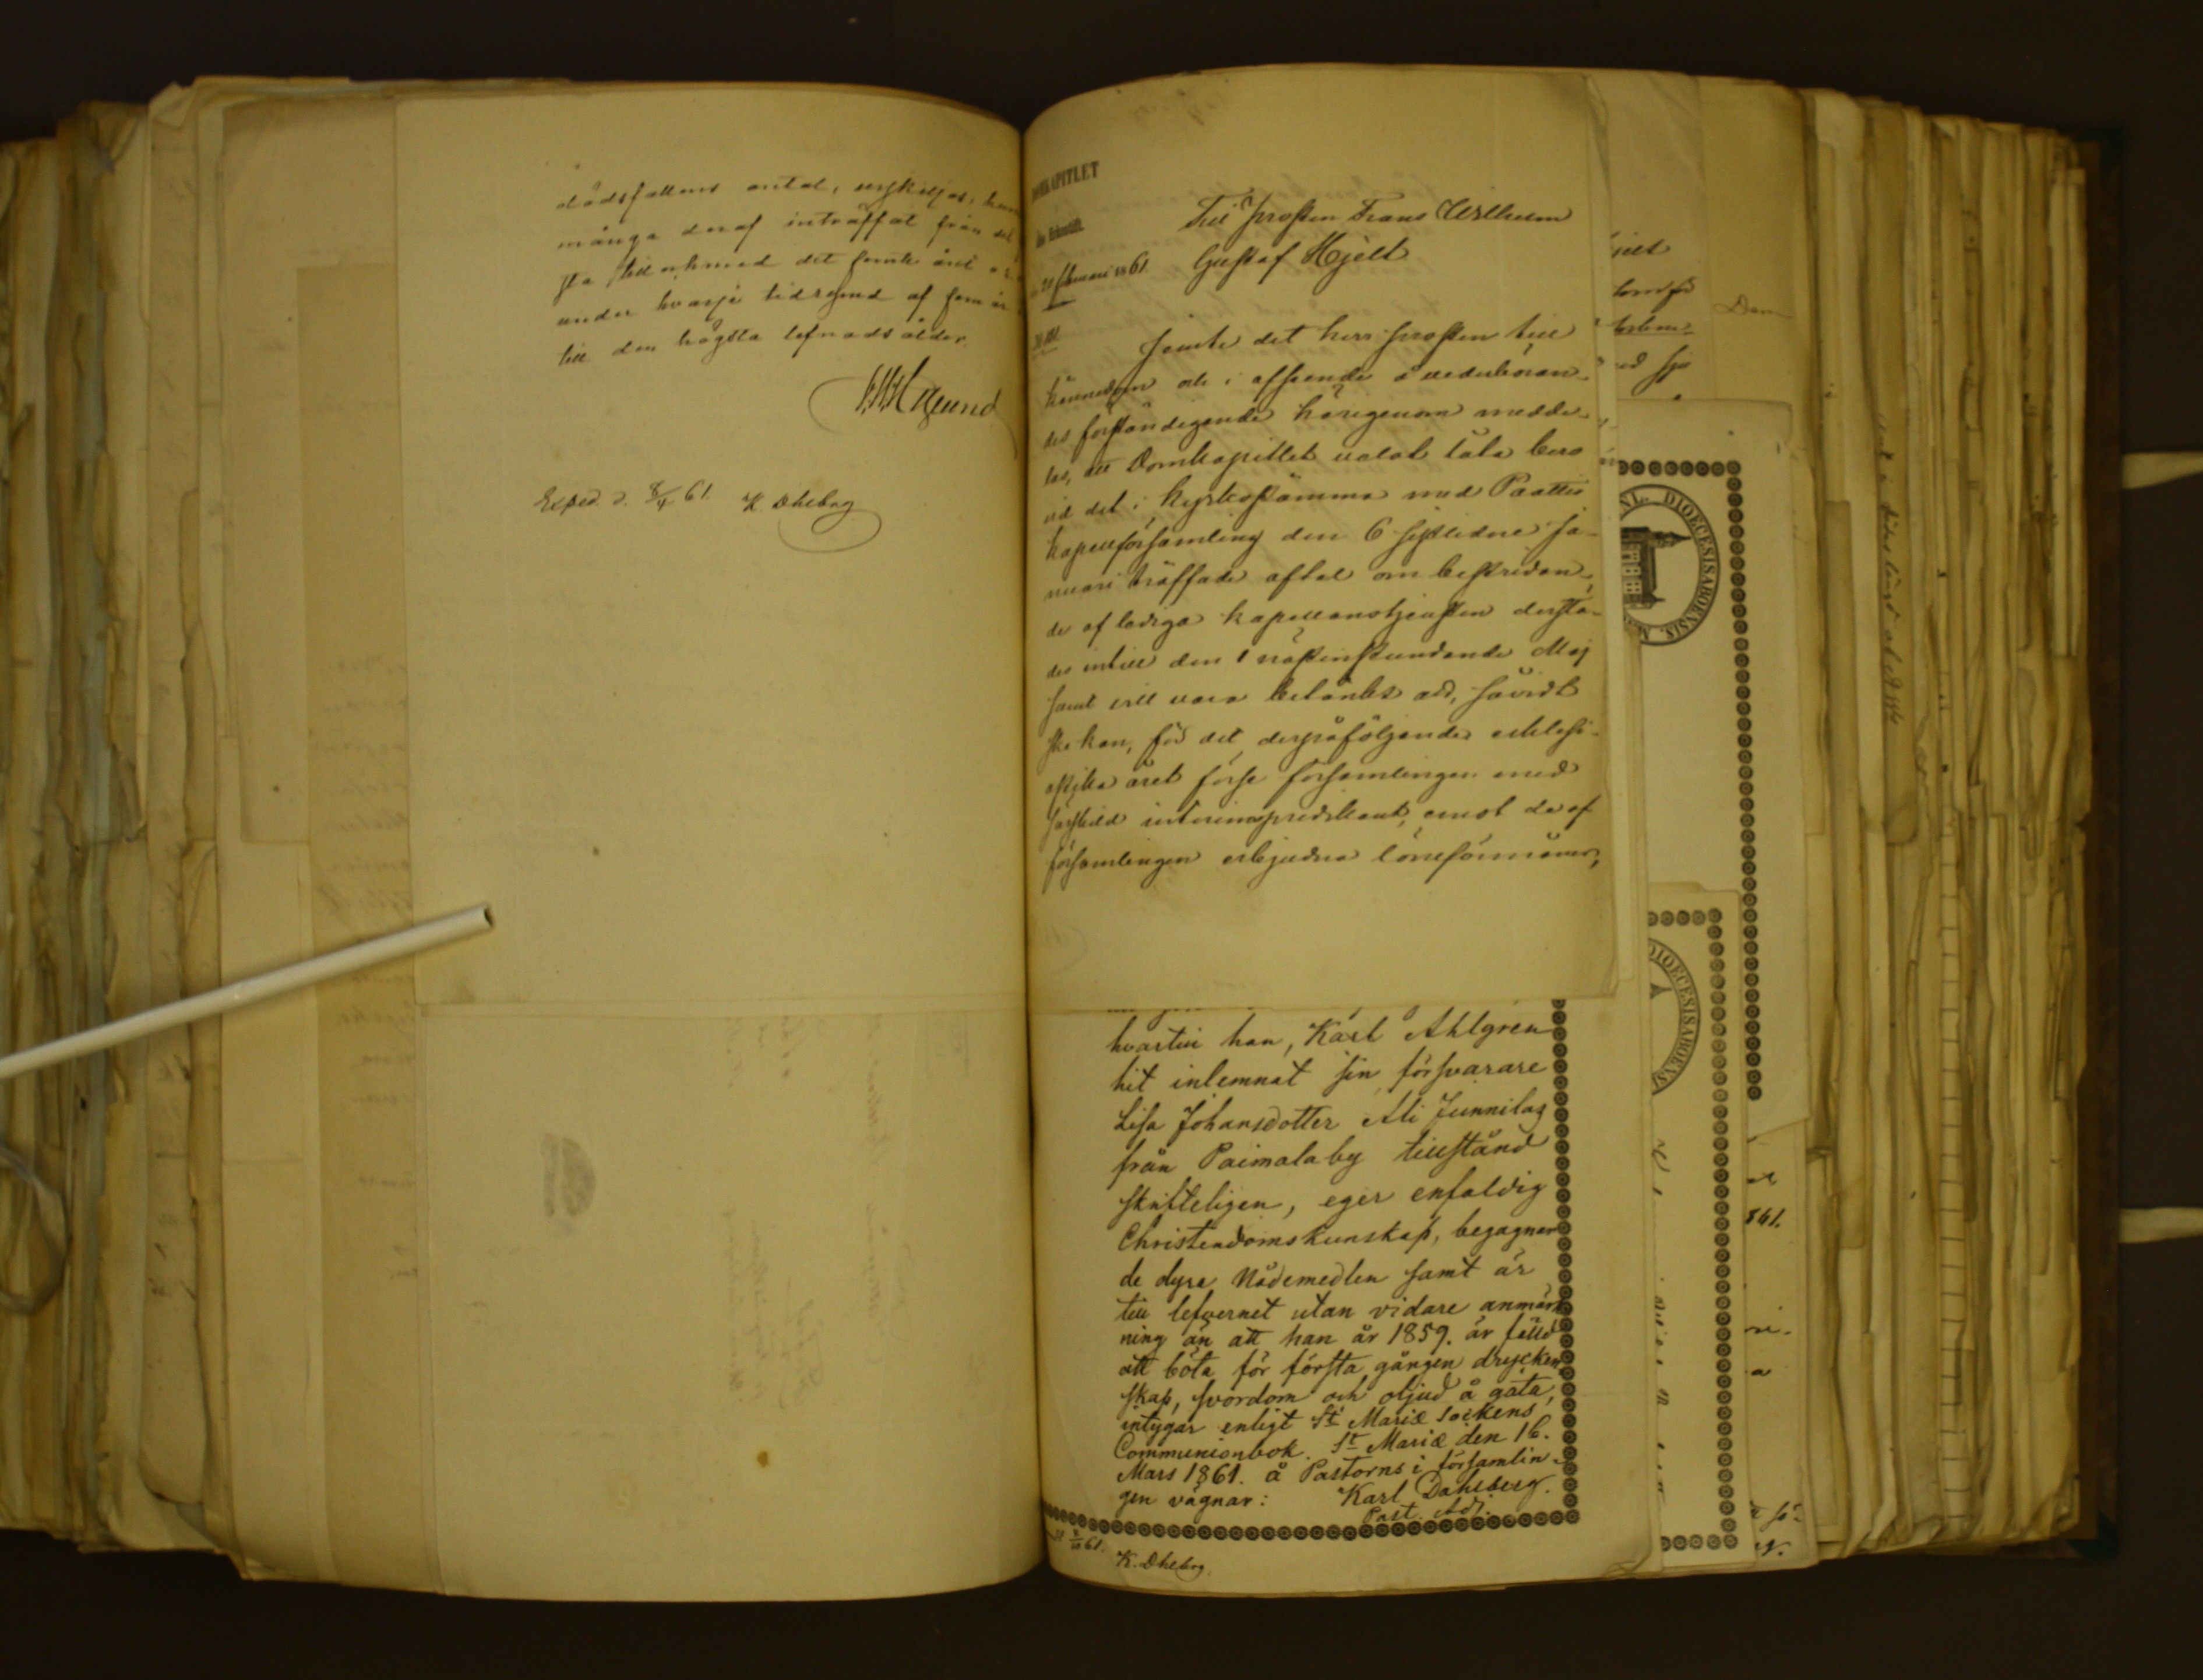 dödsfallens antal, urskiljas, huru
många deraf inträffat från det
sta till och med det femte året och
under hvarje tidrymd af fem år
till den högsta lefnadsålder.
Exped. d. 8/4 61. K. Dhlbrg
DOMKAPITLET
Erkestift.
21 februari 1861.
Till Prosten Frans Wilhelm
Gustaf Hjelt
Jemte det herr Prosten till
kännedom och i afseende å vederböran-
des förständigande härigenom medde-
las, att Domkapitlet velat låta bero
vid det i kyrkostämma med Paattis
kapellförsamling den 6 sistlidne Ja-
nuari träffade aftal om bestridan-
de af lediga kapellanstjensten dersta-
des intill den 1 nästinstundande Maj
samt vill vara betänkt att, såvidt
ske kan, för det derpåföljande ecklesi-
astika året förse församlingen med
särskild interimspredikant, emot de af
församlingen erbjudna löneförmåner,
hvartill han, Karl Ahlgren
hit inlemnat sin försvarare
Lisa Johansdotter Ali Junnilas
från Paimala by tillstånd
skriftligen, eger enfaldig
Christendomskunskap, begagnar
de dyra Nådemedlen samt är
till lefvernet utan vidare anmärk
ning än att han år 1859. är fälld
att böta för första gången drycken
skap, svordom och oljud å gata,
intygar enligt St Mariæ Sockens
Communionbok. St Mariæ den 16.
Mars 1861. å Pastorns i församlin-
gen vägnar: Karl Dahlberg.
Past. Adj.
61.
K. Dhlbrg.
DIOECESIS ABOENSIS
DIOECESIS ABOENSIS
hjelt
Den
861.